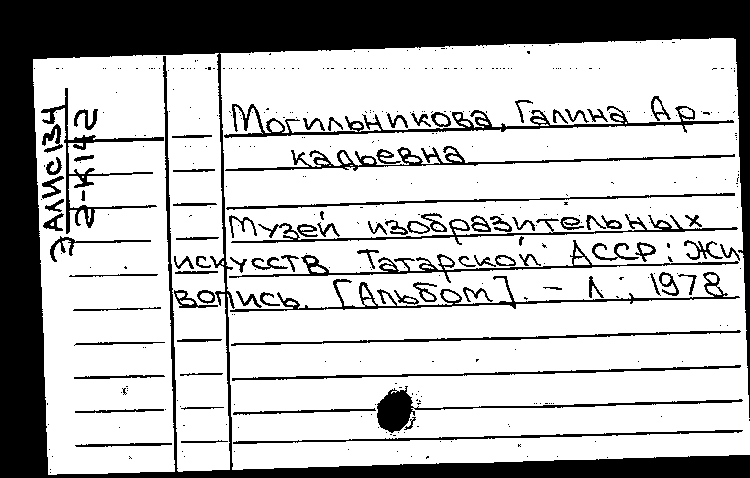 Э АЛИС134
2-К142
Могильникова, Галина Ар-
кадьевна
Музей изобразительных
искусств Татарской АССР: Жи-
вопись. [Альбом]. - Л., 1978